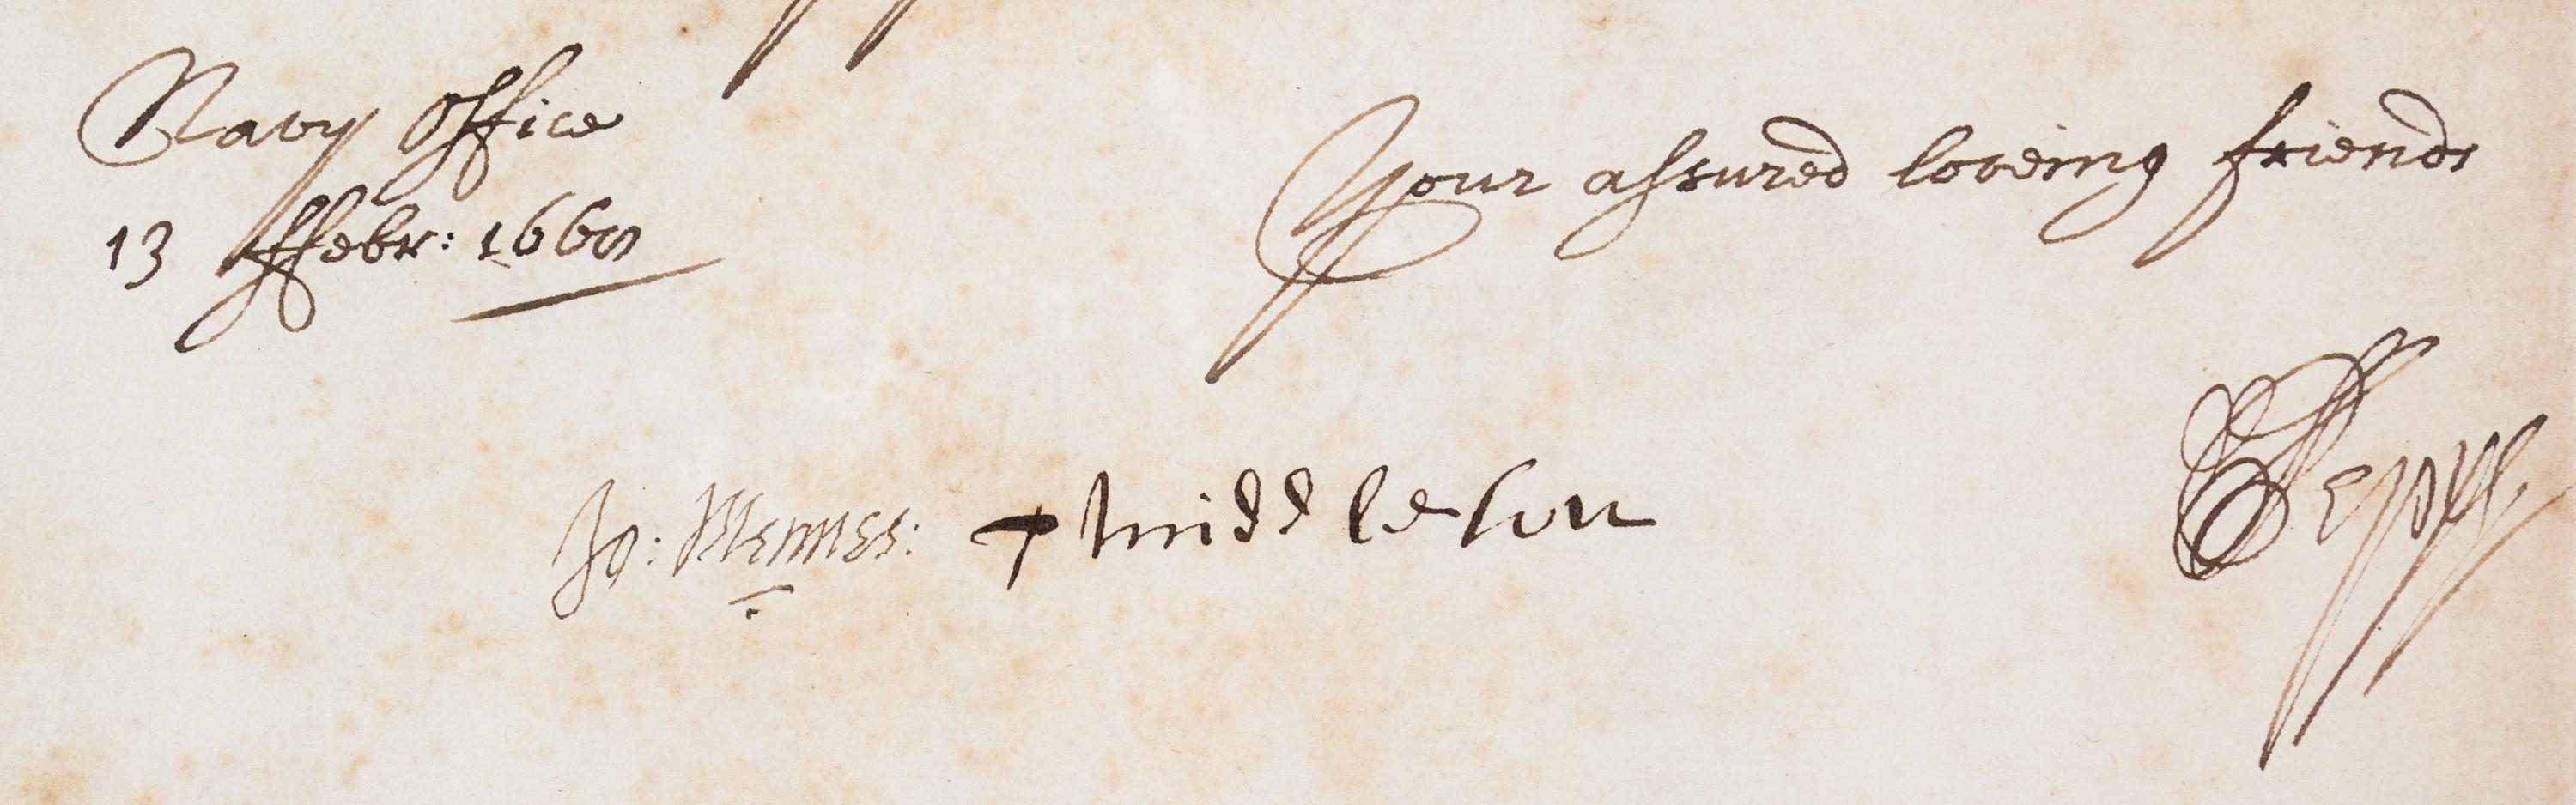 Navy Office
13 ffebr: 1668
Your assured loveing friends
Jo: Mennes: T Middleton
SPepys